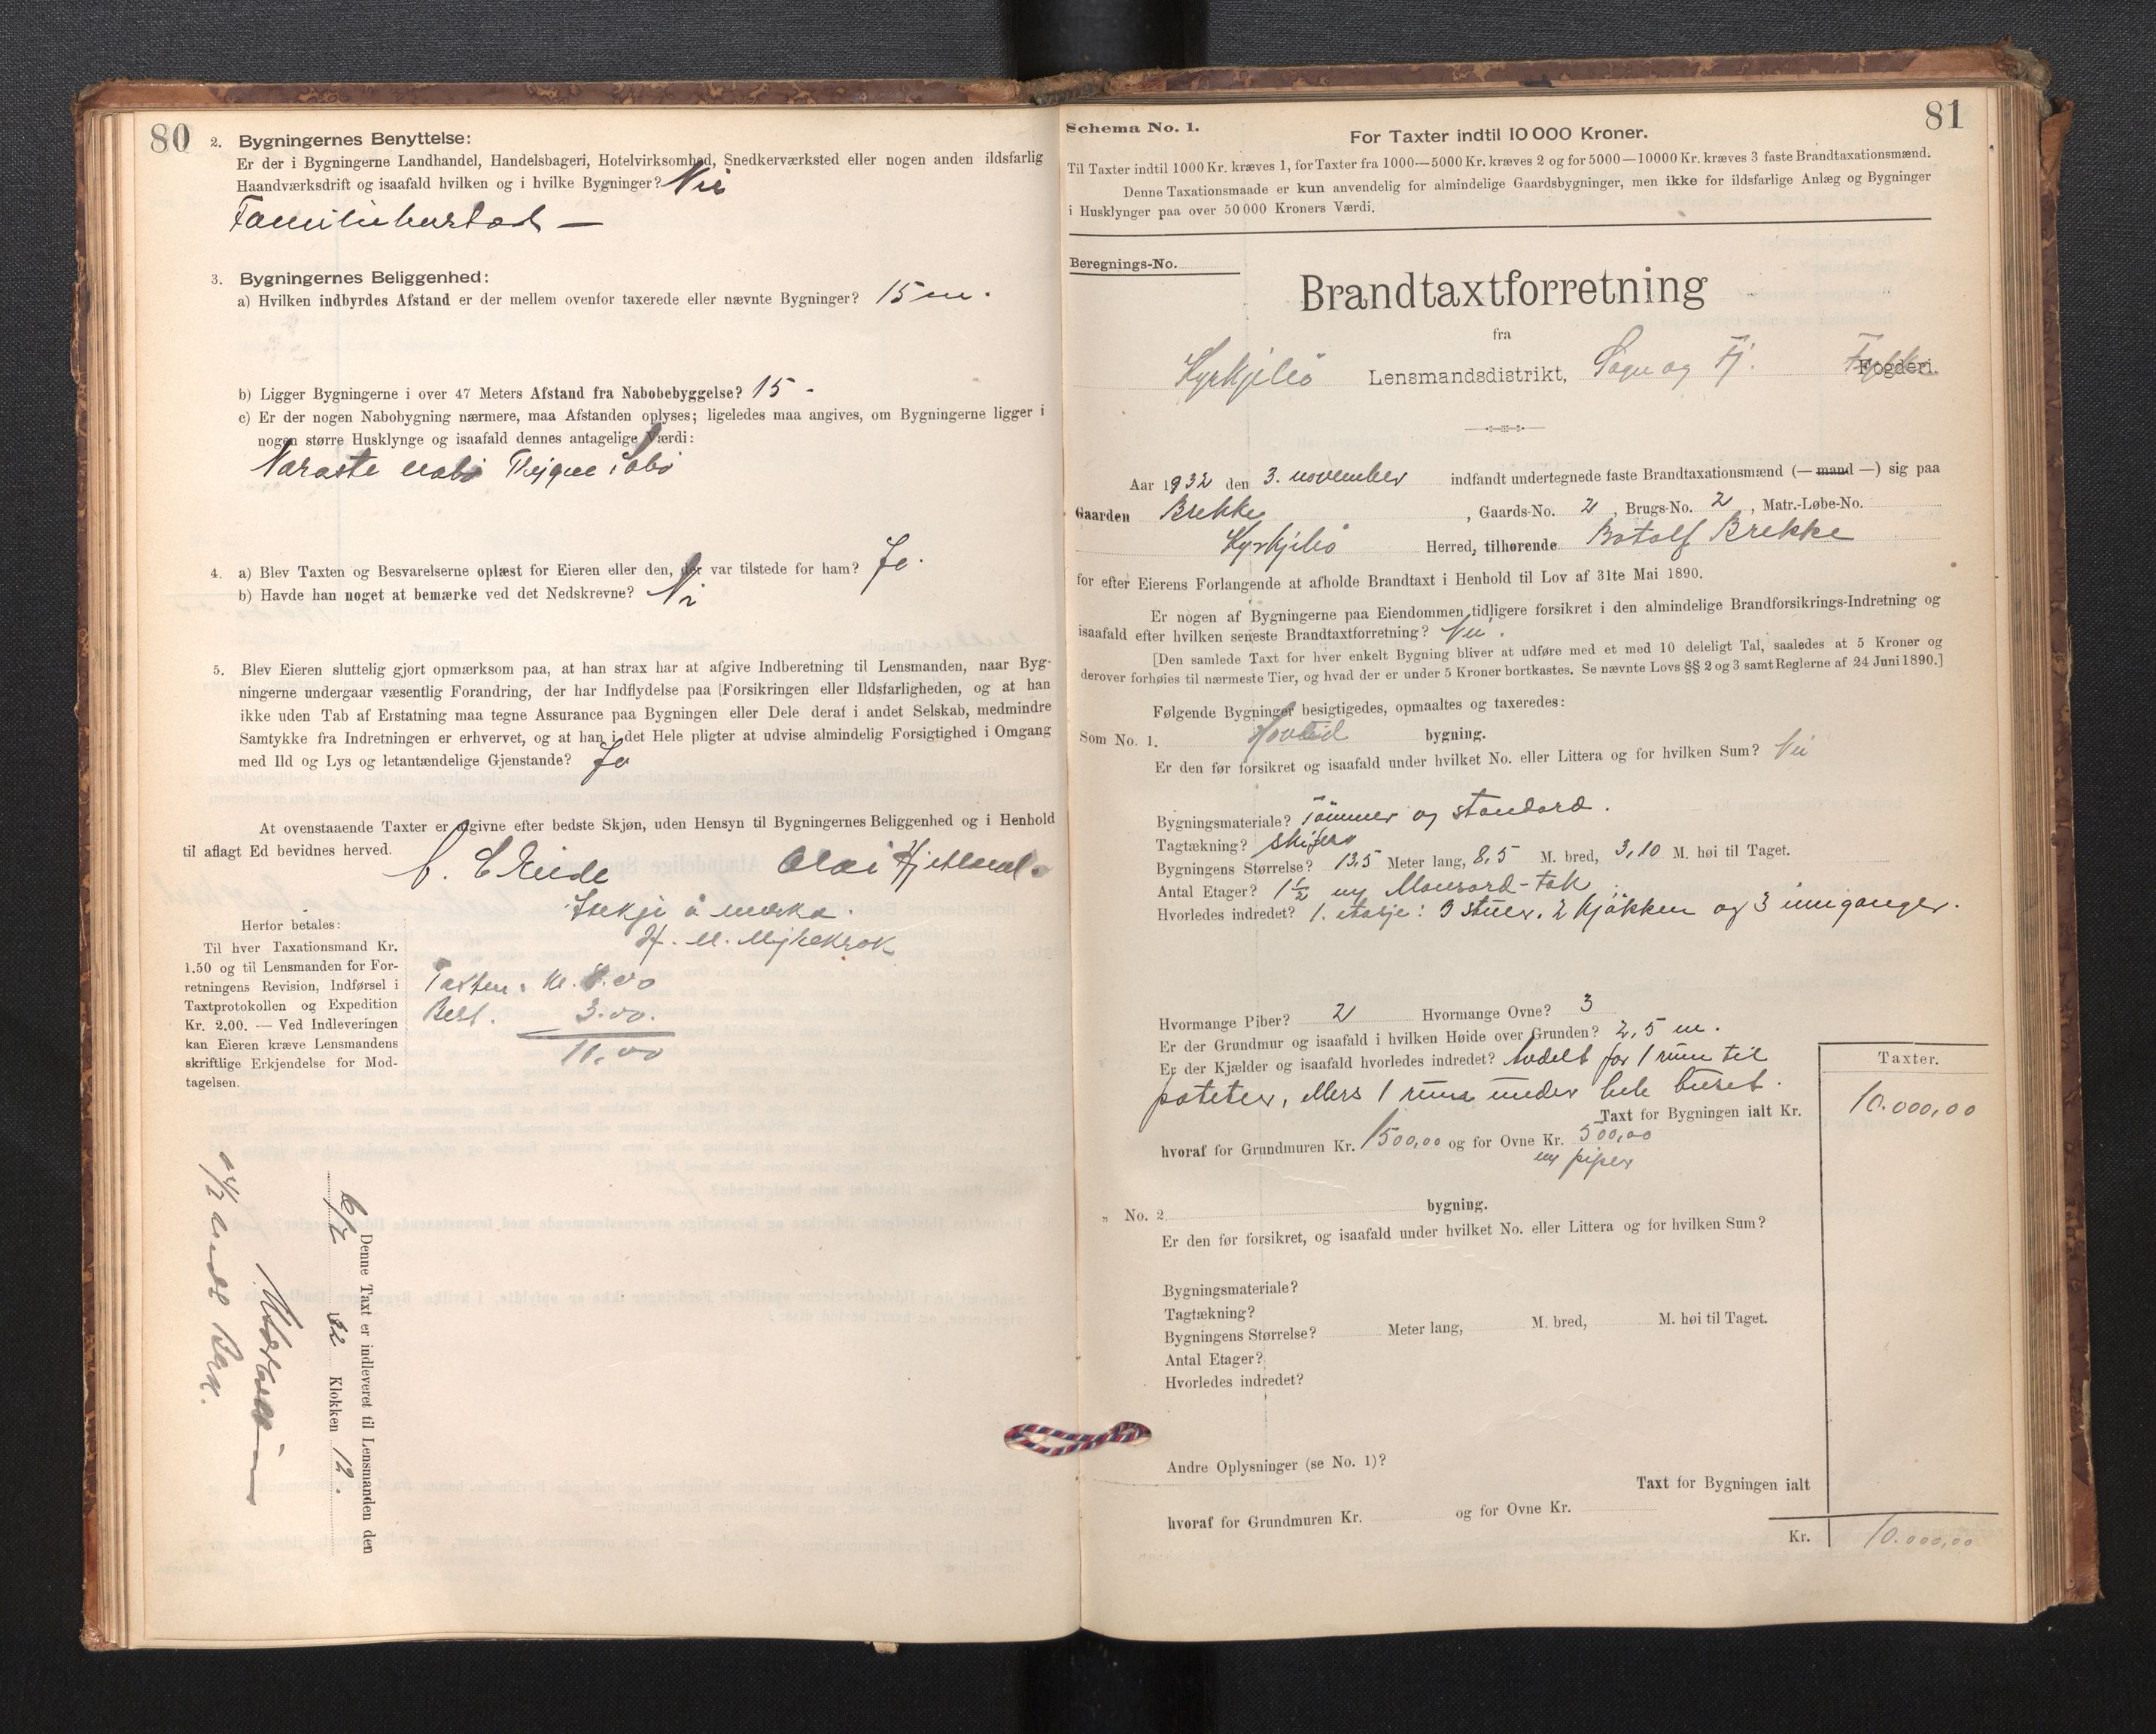 80
2. Bygningernes Benyttelse:
Er der i Bygningerne Landhandel, Handelsbageri, Hotelvirksomhed, Snedkerværksted eller nogen anden ildsfarlig
Haandværksdrift og isaafald hvilken og i hvilke Bygninger? Nei
Familiebustad —
3. Bygningernes Beliggenhed:
a) Hvilken indbyrdes Afstand er der mellem ovenfor taxerede eller nævnte Bygninger? 15 m.
b) Ligger Bygningerne i over 47 Meters Afstand fra Nabobebyggelse? 15 -
c) Er der nogen Nabobygning nærmere, maa Afstanden oplyses; ligeledes maa angives, om Bygningerne ligger i
nogen større Husklynge og isaafald dennes antagelige Værdi:
Næraste nabo
4. a) Blev Taxten og Besvarelserne oplæst for Eieren eller den, der var tilstede for ham? Jo.
b) Havde han noget at bemærke ved det Nedskrevne? Nei
5. Blev Eieren sluttelig gjort opmærksom paa, at han strax har at afgive Indberetning til Lensmanden, naar Byg-
ningerne undergaar væsentlig Forandring, der har Indflydelse paa Forsikringen eller Ildsfarligheden, og at han
ikke uden Tab af Erstatning maa tegne Assurance paa Bygningen eller Dele deraf i andet Selskab, medmindre
Samtykke fra Indretningen er erhvervet, og at han i det Hele pligter at udvise almindelig Forsigtighed i Omgang
med Ild og Lys og letantændelige Gjenstande? Jo
At ovenstaaende Taxter er afgivne efter bedste Skjøn, uden Hensyn til Bygningernes Beliggenhed og i Henhold
til aflagt Ed bevidnes herved.
Eide Olai Hjetland.
Inkje å merka.
H. M. Myklekrok
Herfor betales:
Til hver Taxationsmand Kr.
1.50 og til Lensmanden for For-
retningens Revision, Indførsel i
Taxtprotokollen og Expedition
Kr. 2.00. — Ved Indleveringen
kan Eieren kræve Lensmandens
skriftlige Erkjendelse for Mod-
tagelsen.
Taksten. kr. 8.00
3.00.
11,00
Denne Taxt er indleveret til Lensmanden den
32 Klokken 12.
81
Schema No. 1.
For Taxter indtil 10 000 Kroner.
Til Taxter indtil 1000 Kr. kræves 1, for Taxter fra 1000—5000 Kr. kræves 2 og for 5000—10000 Kr. kræves 3 faste Brandtaxationsmænd.
Denne Taxationsmaade er kun anvendelig for almindelige Gaardsbygninger, men ikke for ildsfarlige Anlæg og Bygninger
i Husklynger paa over 50 000 Kroners Værdi.
Beregnings-No.
Brandtaxtforretning
fra
Kyrkjebø Lensmandsdistrikt, Sogn og Fj. Fylke Fogderi.
Aar 1932 den 3. november indfandt undertegnede faste Brandtaxationsmænd (— mand —) sig paa
Gaarden Brekke, Gaards-No. 2, Brugs-No. 2, Matr.-Løbe-No.
Kyrkjebø Herred, tilhørende Botolf Brekke
for efter Eierens Forlangende at afholde Brandtaxt i Henhold til Lov af 31te Mai 1890.
Er nogen af Bygningerne paa Eiendommen tidligere forsikret i den almindelige Brandforsikrings-Indretning og
isaafald efter hvilken seneste Brandtaxtforretning? Nei.
[Den samlede Taxt for hver enkelt Bygning bliver at udføre med et med 10 deleligt Tal, saaledes at 5 Kroner og
derover forhøies til nærmeste Tier, og hvad der er under 5 Kroner bortkastes. Se nævnte Lovs §§ 2 og 3 samt Reglerne af 24 Juni 1890.]
Følgende Bygninger besigtigedes, opmaaltes og taxeredes:
Som No. 1. bygning.
Er den før forsikret og isaafald under hvilket No. eller Littera og for hvilken Sum? Nei
Bygningsmateriale? Tömmer og standard.
Tagtækning? skifer
Bygningens Størrelse? 13,5 Meter lang, 8,5 M. bred, 3,10 M. høi til Taget.
Antal Etager? 1½ ny Mansard-tak
Hvorledes indredet? 1. etasje: 3 stuer, 2 kjøkken og 3 inngangar.
Hvormange Piber? 2 Hvormange Ovne? 3
Er der Grundmur og isaafald i hvilken Høide over Grunden? 2,5 m.
Er der Kjælder og isaafald hvorledes indredet? Avdelt for 1 rum til
poteter, ellers 1 rum under hele huset.
Taxt for Bygningen ialt Kr.
Taxter.
10.000,00
hvoraf for Grundmuren Kr. 1500,00 og for Ovne Kr. 500,00
og piper
" No. 2 bygning.
Er den før forsikret, og isaafald under hvilket No. eller Littera og for hvilken Sum?
Bygningsmateriale?
Tagtækning?
Bygningens Størrelse? Meter lang, M. bred, M. høi til Taget.
Antal Etager?
Hvorledes indredet?
Andre Oplysninger (se No. 1)?
Taxt for Bygningen ialt
hvoraf for Grundmuren Kr. og for Ovne Kr.
Kr. 10.000,00